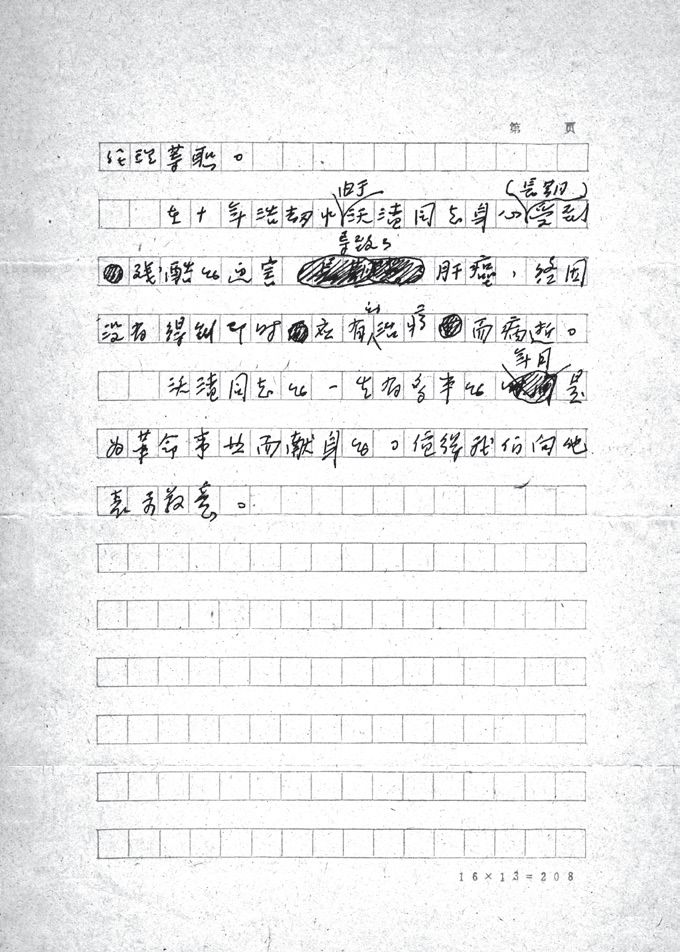 第 页
经理等职。
由于 (长期)
在十年浩劫中沃渣同志身心受到
导致了
残酷的迫害 肝癌,终因
没有得到即时在有治疗而病逝。
年月
沃渣同志的一生有多年的是
为革命事业而献身的。值得我们向他
表示敬意。
16×13=208